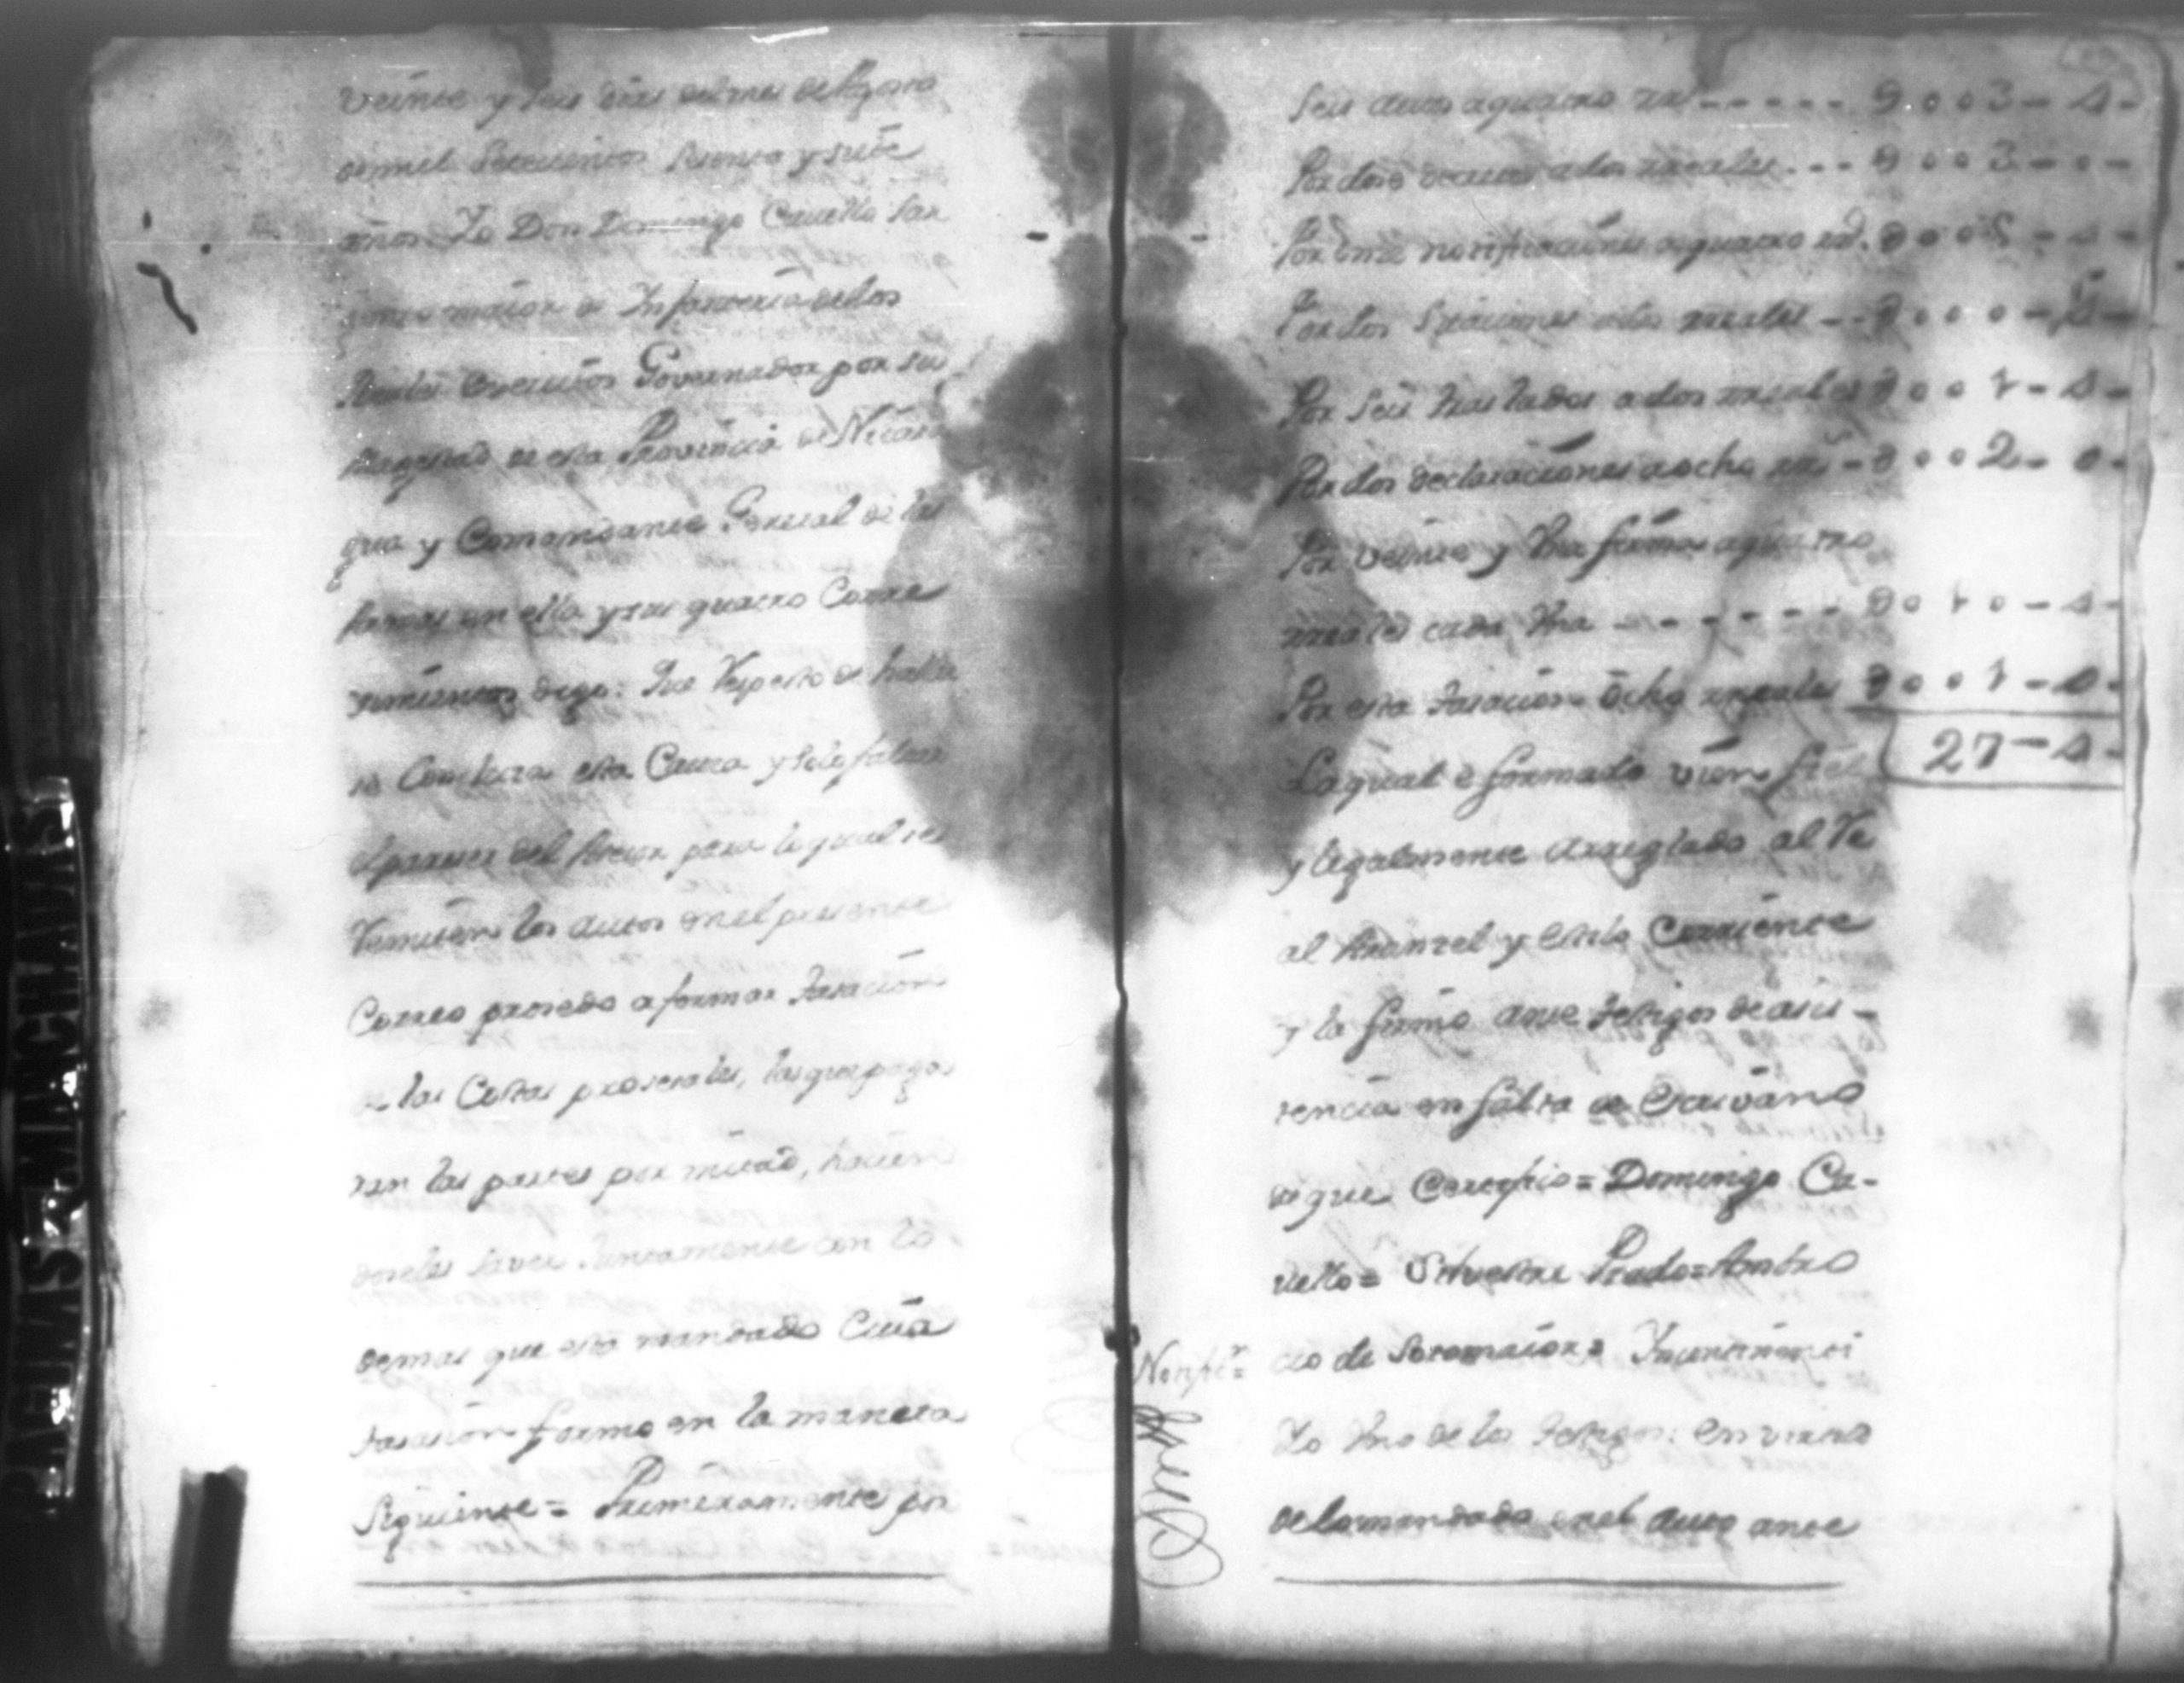 veinte y seis dias del mes de Agosto
de mil setecientos sesenta y siete
años. Yo Don Domingo Cavello Sar
gento maior de Infanteria de los
Reales Exercitos Governador por su
Magestad de esta Provincia de Nicara
gua y Comandante General de las
Armas en ella y sus quatro Corre
gimientos digo: Que Respecto de hallar
se Conclusa esta Causa y solo faltar
el parecer del Asesor para lo qual se
Remiten los autos en el presente
Correo prosedo a formar tasacion
de las Costas prosesales, las que paga
ran las partes por mitad, hacien
doseles saver Juntamente con lo
demas que está mandado Cuia
tasasion formo en la manera
Siguiente = Primeramente por
Seis autos a quatro rrs ----- 9003-0-
Por dose decretos a dos rreales --- 9003-0-
Por onze notificaciones a quatro rrs. 9005-4-
Por dos Sitaciones a dos rreales -- 9000-4-
Por seis traslados a dos rreales 9001-4-
Por dos declaraciones a ocho rrs - 9002-0-
Por veinte y Una firmas a quatro
rreales cada Una ------ 9010-4-
Por esta tasacion ocho rreales 9001-0-
27-4-
La qual e formado vien fiel
y legalmente Arreglado al Re
al Aranzel y estilo Corriente
y la firmo ante testigos de asis-
tencia en falta de Escrivano
de que Certifico = Domingo Ca-
vello = Silvestre Prado = Ambro
cio de Sotomaior = Incontinenti
Notific.n
Yo Uno de los testigos: en virtud
de lo mandado en el auto ante
PAGINAS MANCHADAS